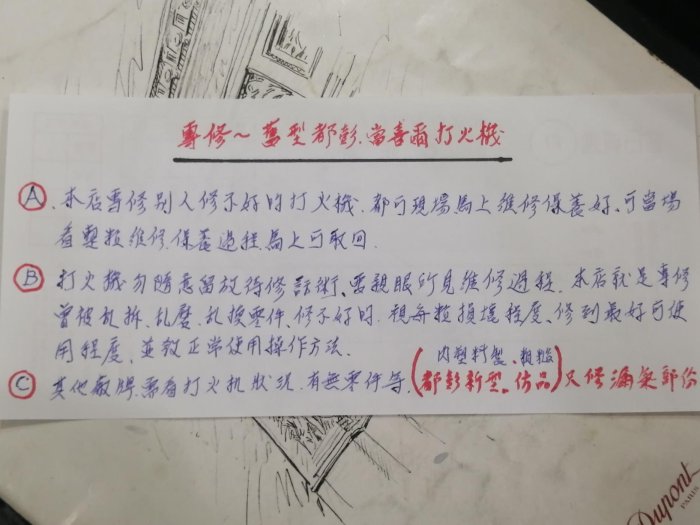 專修~舊型都彭.當喜爾打火機
Ⓐ.本店專修別人修不好的打火機.都可現場馬上維修保養好.可當場
看整枝維修.保養過程.馬上可取回.
Ⓑ 打火機勿隨意留放待修話術、要親眼所見維修過程.本店就是專修
曾被乱拆.乱磨.乱換零件.修不好的.視每粒損壞程度、修到最好可使
用程度、並教正常使用操作方法.
內塑料型、粗糙
Ⓒ 其他廠牌.需看打火机狀況.有無零件等.(都彭新型、仿品)只修漏氣部份
Dupont
PARIS